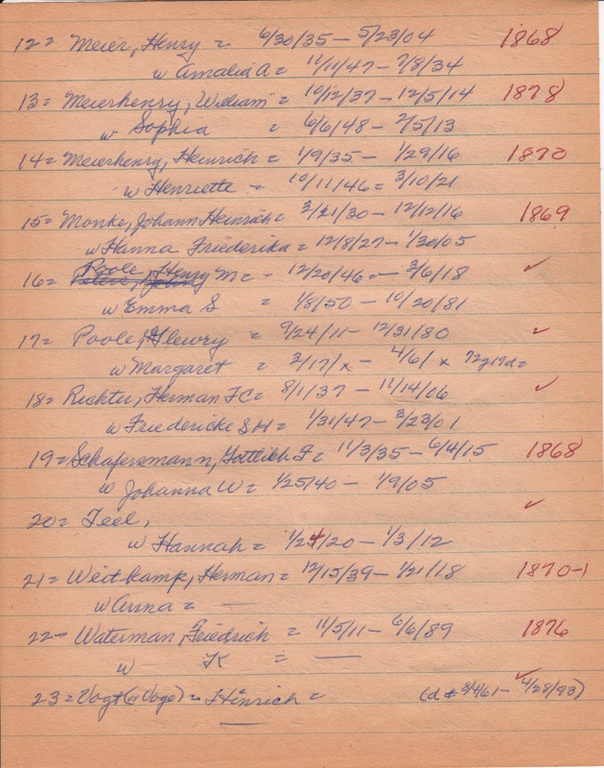 12 = Meier, Henry = 6/30/35 – 5/23/04 1868
w Amalia A = 11/11/47 – 7/8/34
13 = Meierhenry, William = 10/12/37 – 12/5/14 1878
w Sophia = 6/6/48 – 2/5/13
14 = Meierhenry, Heinrich = 1/9/35 – 1/29/16 1870
w Henriette = 10/11/46 = 3/10/21
15 = Monke, Johann Heinrich = 3/21/30 – 12/12/16 1869
w Hanna Friederika = 12/8/27 – 1/30/05
16 = Poole, Henry Mc – 12/20/46 – 3/6/18 ✓
w Emma S = 1/8/50 – 10/20/81
17 = Poole, Flewry = 9/24/11 – 12/31/80 ✓
w Margaret = 2/17/x – 4/6/x 72y17d =
18 = Richter, Herman FC = 8/1/37 – 11/14/06 ✓
w Friedericke SH = 1/31/47 – 3/23/01
19 = Schafersmann, Gottlieb F = 11/3/35 – 6/4/15 1868
w Johanna W = 1/25/40 – 1/9/05
20 = Teel, ✓
w Hannah = 1/24/20 – 1/3/12
21 = Weitkamp, Herman = 12/15/39 – 1/21/18 1870-1
w Anna = —
22 – Waterman, Friedrich = 11/5/11 – 6/6/89 1876
w K = —
23 = Vogt (or Voge) = Hinrich = (d # 8/4/61 – 4/28/93) ✓
—